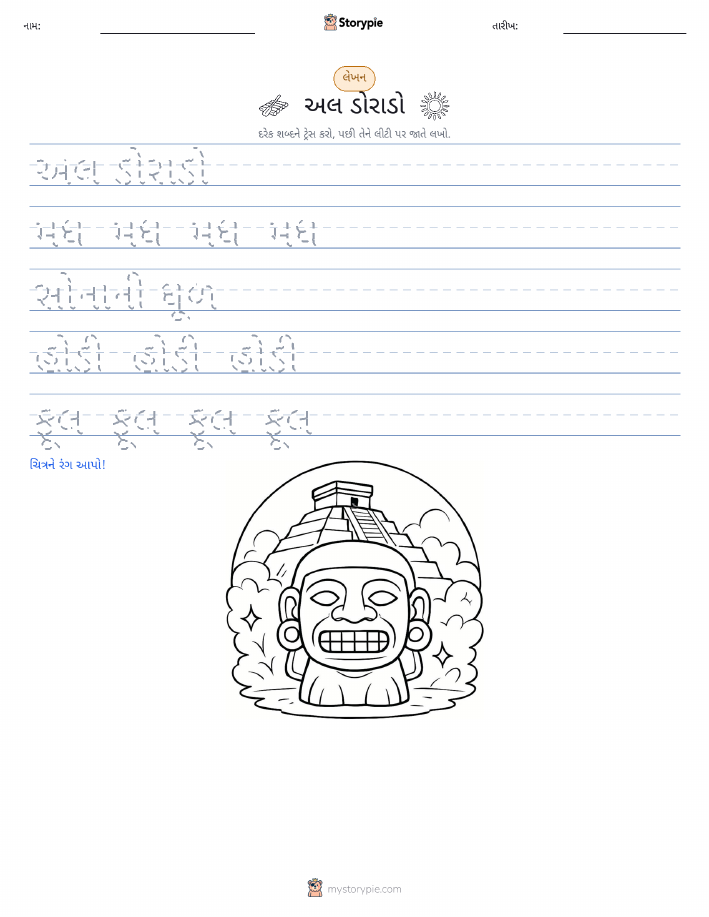 નામ:
Storypie
તારીખ:
લેખન
અલ ડોરાડો
દરેક શબ્દને ટ્રેસ કરો, પછી તેને લીટી પર જાતે લખો.
અલ ડોરાડો
મધ મધ મધ મધ
સોનાની ધૂળ
હોડી હોડી હોડી
ફૂલ ફૂલ ફૂલ ફૂલ
ચિત્રને રંગ આપો!
mystorypie.com